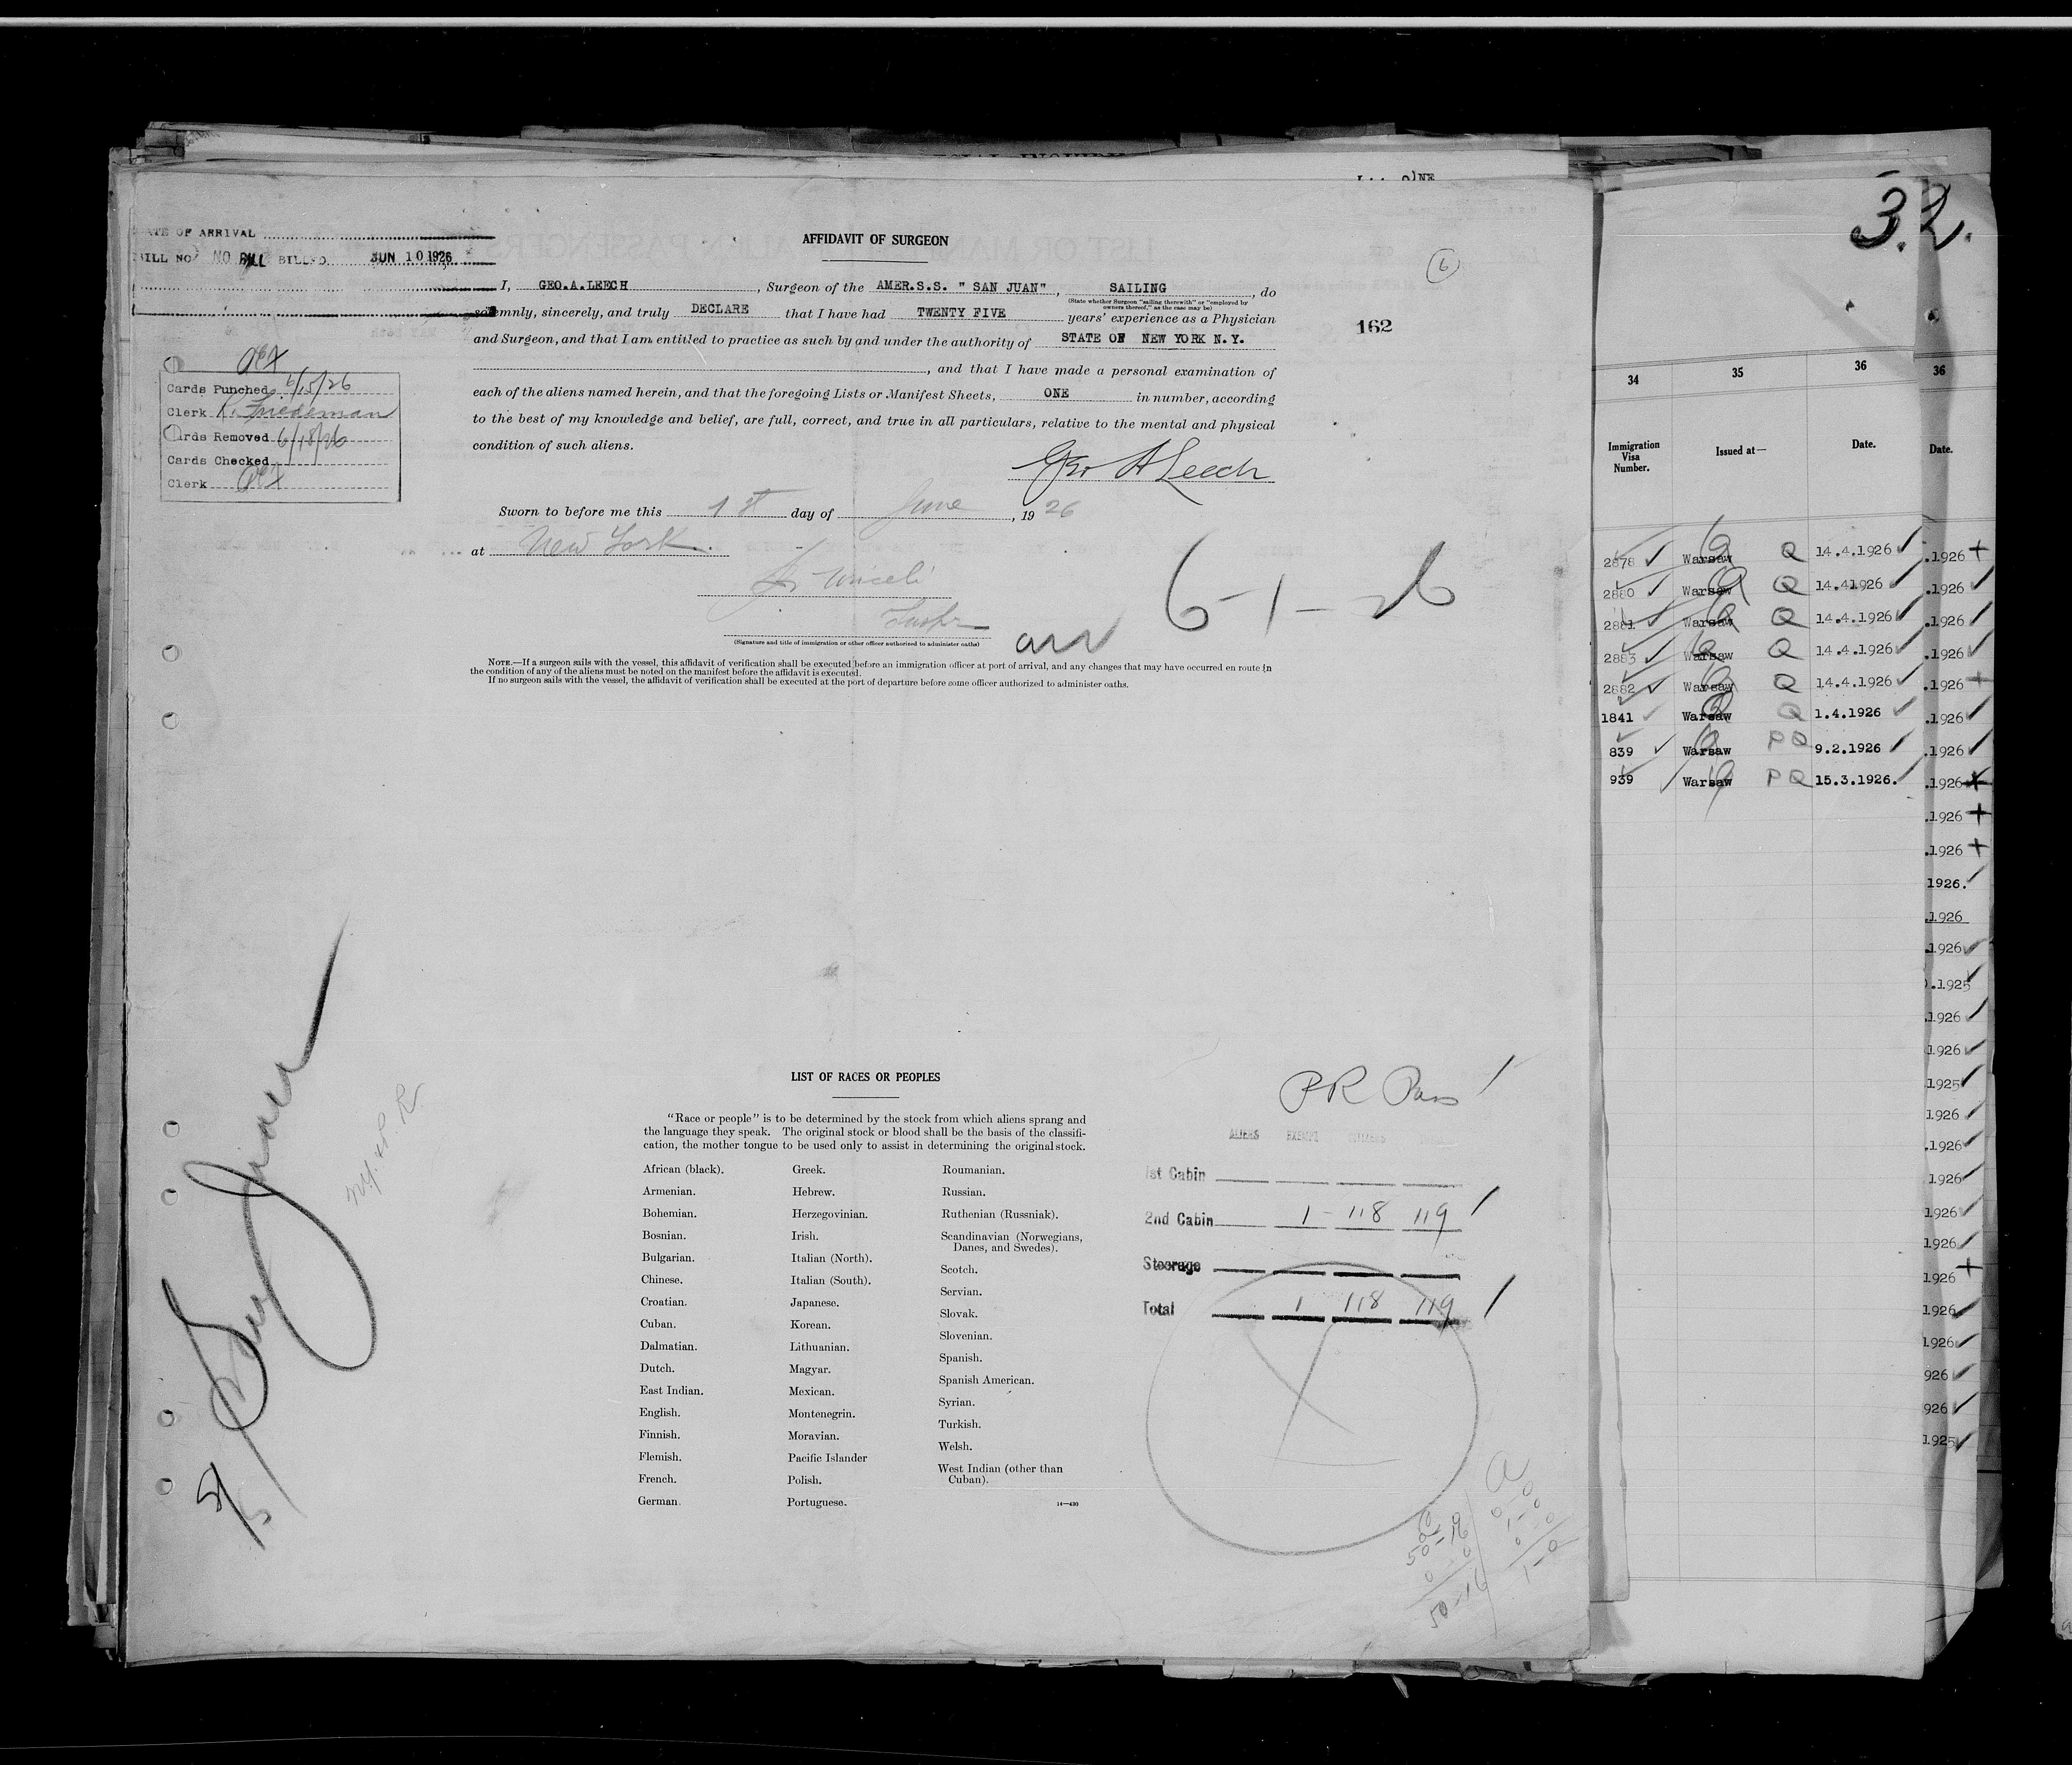 DATE OF ARRIVAL
BILL NO. NO BILL BILLED JUN 10 1926
AFFIDAVIT OF SURGEON
6
I, GEO.A.LEECH, Surgeon of the AMER.S.S. " SAN JUAN", SAILING, do
(State whether Surgeon "sailing therewith" or "employed by
owners thereof," as the case may be)
solemnly, sincerely, and truly DECLARE that I have had TWENTY FIVE years' experience as a Physician
162
and Surgeon, and that I am entitled to practice as such by and under the authority of STATE OF NEW YORK N.Y.
, and that I have made a personal examination of
each of the aliens named herein, and that the foregoing Lists or Manifest Sheets, ONE in number, according
to the best of my knowledge and belief, are full, correct, and true in all particulars, relative to the mental and physical
condition of such aliens.
Geo A Leech
Cards Punched 6/15/26
Clerk R. Friedeman
Cards Removed 6/18/26
Cards Checked
Clerk
Sworn to before me this 1st day of June, 1926
at New York.
Inspr
(Signature and title of immigration or other officer authorized to administer oaths)
arr 6-1-26
NOTE.—If a surgeon sails with the vessel, this affidavit of verification shall be executed before an immigration officer at port of arrival, and any changes that may have occurred en route in
the condition of any of the aliens must be noted on the manifest before the affidavit is executed.
If no surgeon sails with the vessel, the affidavit of verification shall be executed at the port of departure before some officer authorized to administer oaths.
San Juan
N.Y. & P. R.
LIST OF RACES OR PEOPLES
"Race or people" is to be determined by the stock from which aliens sprang and
the language they speak. The original stock or blood shall be the basis of the classifi-
cation, the mother tongue to be used only to assist in determining the original stock.
African (black).
Armenian.
Bohemian.
Bosnian.
Bulgarian.
Chinese.
Croatian.
Cuban.
Dalmatian.
Dutch.
East Indian.
English.
Finnish.
Flemish.
French.
German.
Greek.
Hebrew.
Herzegovinian.
Irish.
Italian (North).
Italian (South).
Japanese.
Korean.
Lithuanian.
Magyar.
Mexican.
Montenegrin.
Moravian.
Pacific Islander
Polish.
Portuguese.
Roumanian.
Russian.
Ruthenian (Russniak).
Scandinavian (Norwegians,
Danes, and Swedes).
Scotch.
Servian.
Slovak.
Slovenian.
Spanish.
Spanish American.
Syrian.
Turkish.
Welsh.
West Indian (other than
Cuban).
14—430
PR Pass
ALIENS EXEMPT CITIZENS
1st Cabin
2nd Cabin 1 - 118 119
Steerage
Total 1 118 119
50-16
0 0
50-16
0-0
1-0
0 0
1-0
32.
34 35 36
Immigration
Visa
Number.
Issued at—
Date.
2878 Warsaw Q 14.4.1926
2880 Warsaw Q 14.41926
2881 Warsaw Q 14.4.1926
2883 Warsaw Q 14.4.1926
2882 Warsaw Q 14.4.1926
1841 Warsaw Q 1.4.1926
839 Warsaw PQ 9.2.1926
939 Warsaw PQ 15.3.1926.
36
Date.
.1926
.1926
.1926
.1926
.1926
.1926
.1926
.1926
.1926
.1926
1926.
.1926
.1926
.1925
.1926
.1926
1925
.1926
.1926
1926
1926
1926
1926
1926
1926
926
926
1925